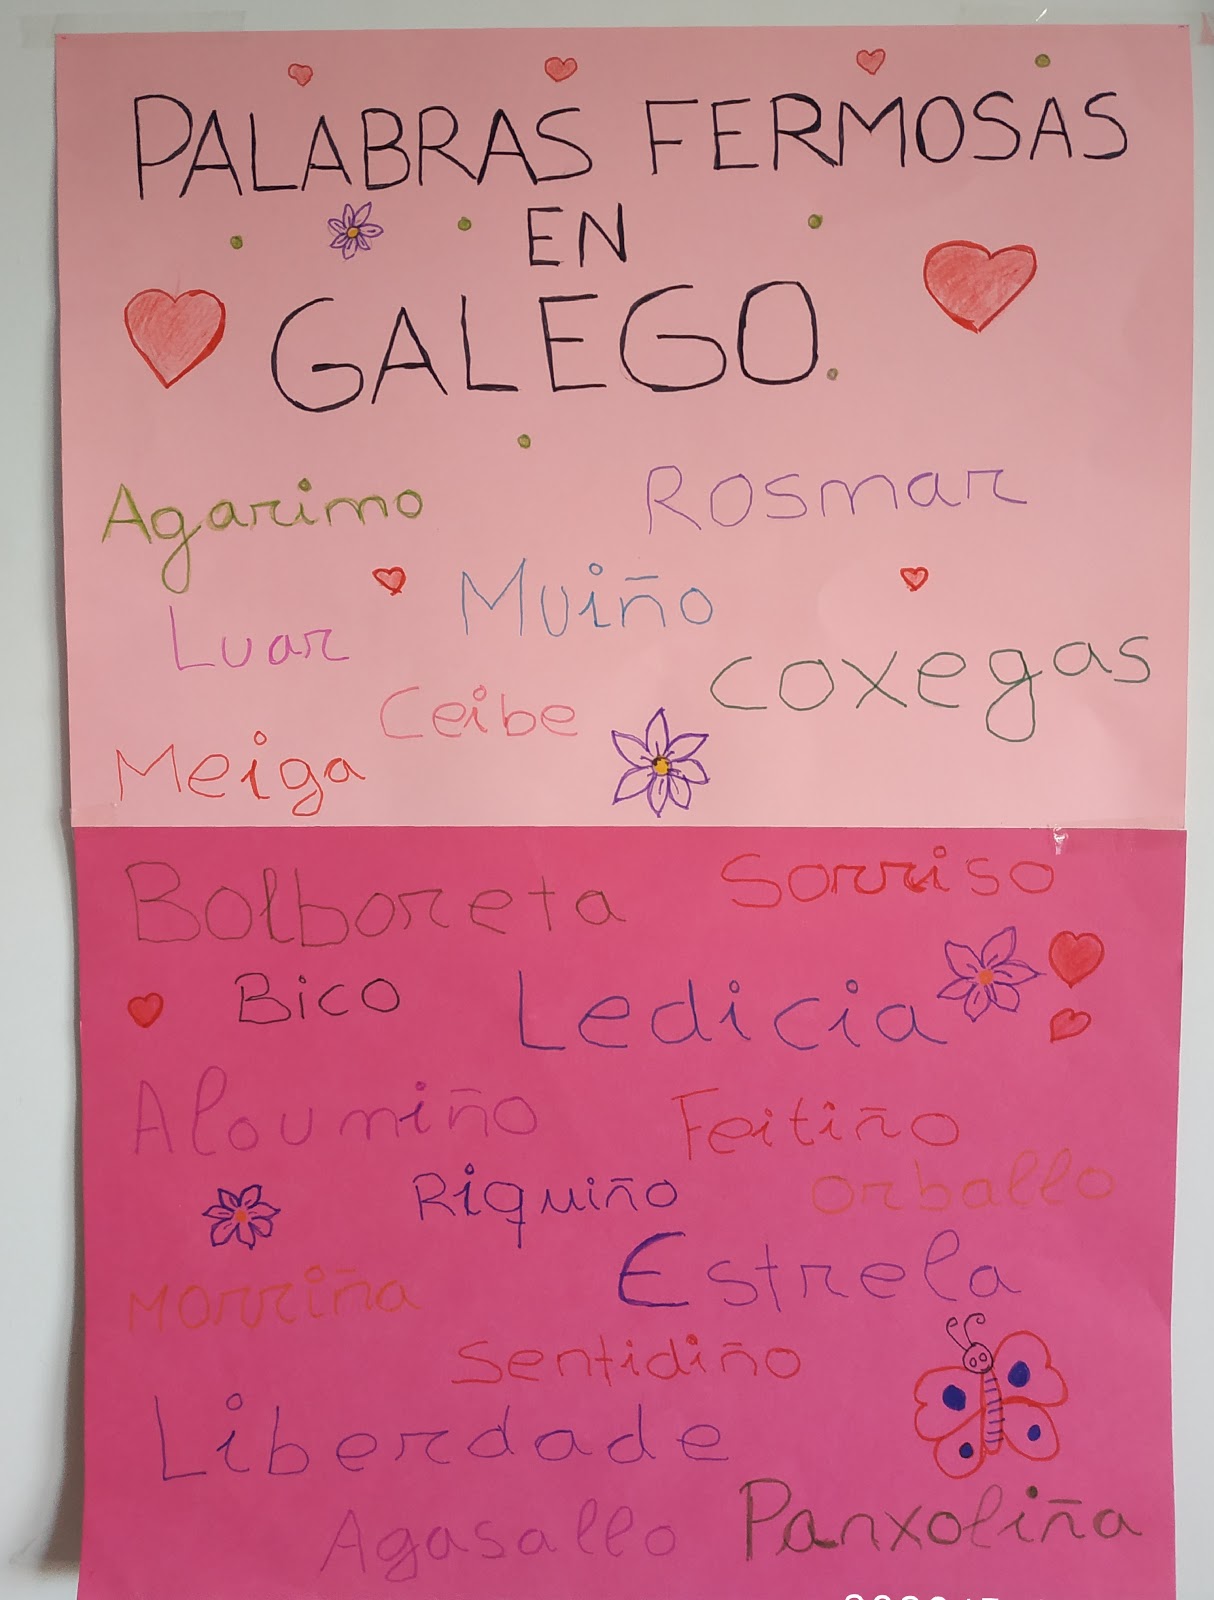 PALABRAS FERMOSAS
EN
GALEGO.
Agarimo
Rosmar
Muiño
Luar
Coxegas
Ceibe
Meiga
Bolboreta
Sorriso
Bico
Ledicia
Aloumiño
Feitiño
Riquiño
Orballo
Estrela
Morriña
Sentidiño
Liberdade
Panxoliña
Agasallo